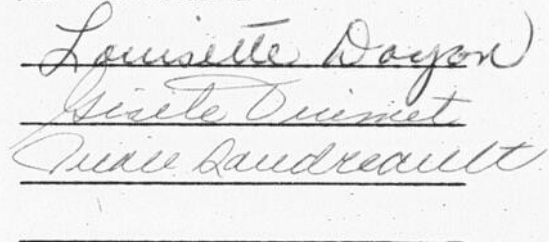 Louisette Doyon
Gisèle Ouimet
Gaudreault